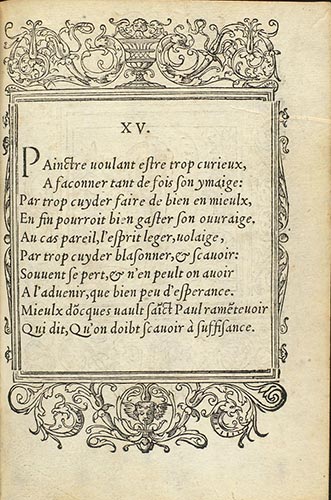 XV.
PAinctre voulant estre trop curieux,
A faconner tant de fois son ymaige:
Par trop cuyder faire de bien en mieulx,
En fin pourroit bien gaster son ouvraige.
Au cas pareil, l'esprit leger, volaige,
Par trop cuyder blasonner, & scavoir:
Souvent se pert, & n'en peult on avoir
A l'advenir, que bien peu d'esperance.
Mieulx dõcques vault saĩct Paul ramẽtevoir
Qui dit, Qu'on doibt scavoir à suffisance.